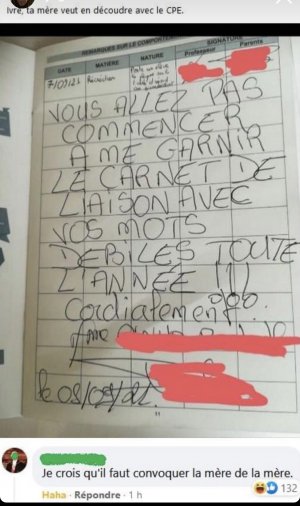 Ivre, la mère veut en découdre avec le CPE.
REMARQUES SUR LE COMPORTEMENT
SIGNATURE
DATE MATIÈRE NATURE Professeur Parents
7/09/21 Récréation
VOUS ALLEZ PAS
COMMENCER
A ME GARNIR
LE CARNET DE
LIAISON AVEC
VOS MOTS
DEBILES TOUTE
L'ANNÉE !!!
Cordialement.
Mme
le 08/09/21.
11
Je crois qu'il faut convoquer la mère de la mère.
Haha · Répondre · 1 h
132